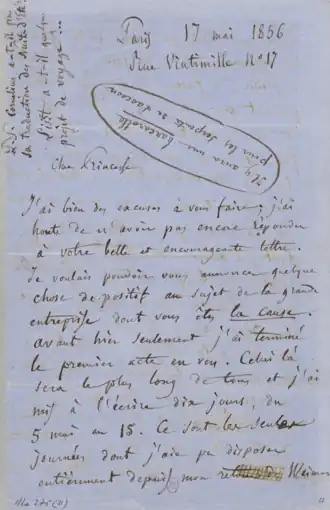 Paris 17 mai 1856
Rue Vintimille No 17
P.S. Cornelius a-t-il
sa traduction des Nuits d'été
Liszt a-t-il quelque
projet de voyage ...
Il y aura une barcarolle
pour les serpents de Laocoon
Chère Princesse
J'ai bien des excuses à vous faire ; j'ai
honte de n'avoir pas encore répondu
à votre belle et encourageante lettre.
Je voulais pouvoir vous annoncer quelque
chose de positif au sujet de la grande
entreprise dont vous êtes la cause.
avant hier seulement j'ai terminé
le premier acte en vers. Celui là
sera le plus long de tous et j'ai
mis à l'écrire dix jours, du
5 mai au 15. Ce sont les seules
journées dont j'aie pu disposer
entièrement depuis mon Weimar